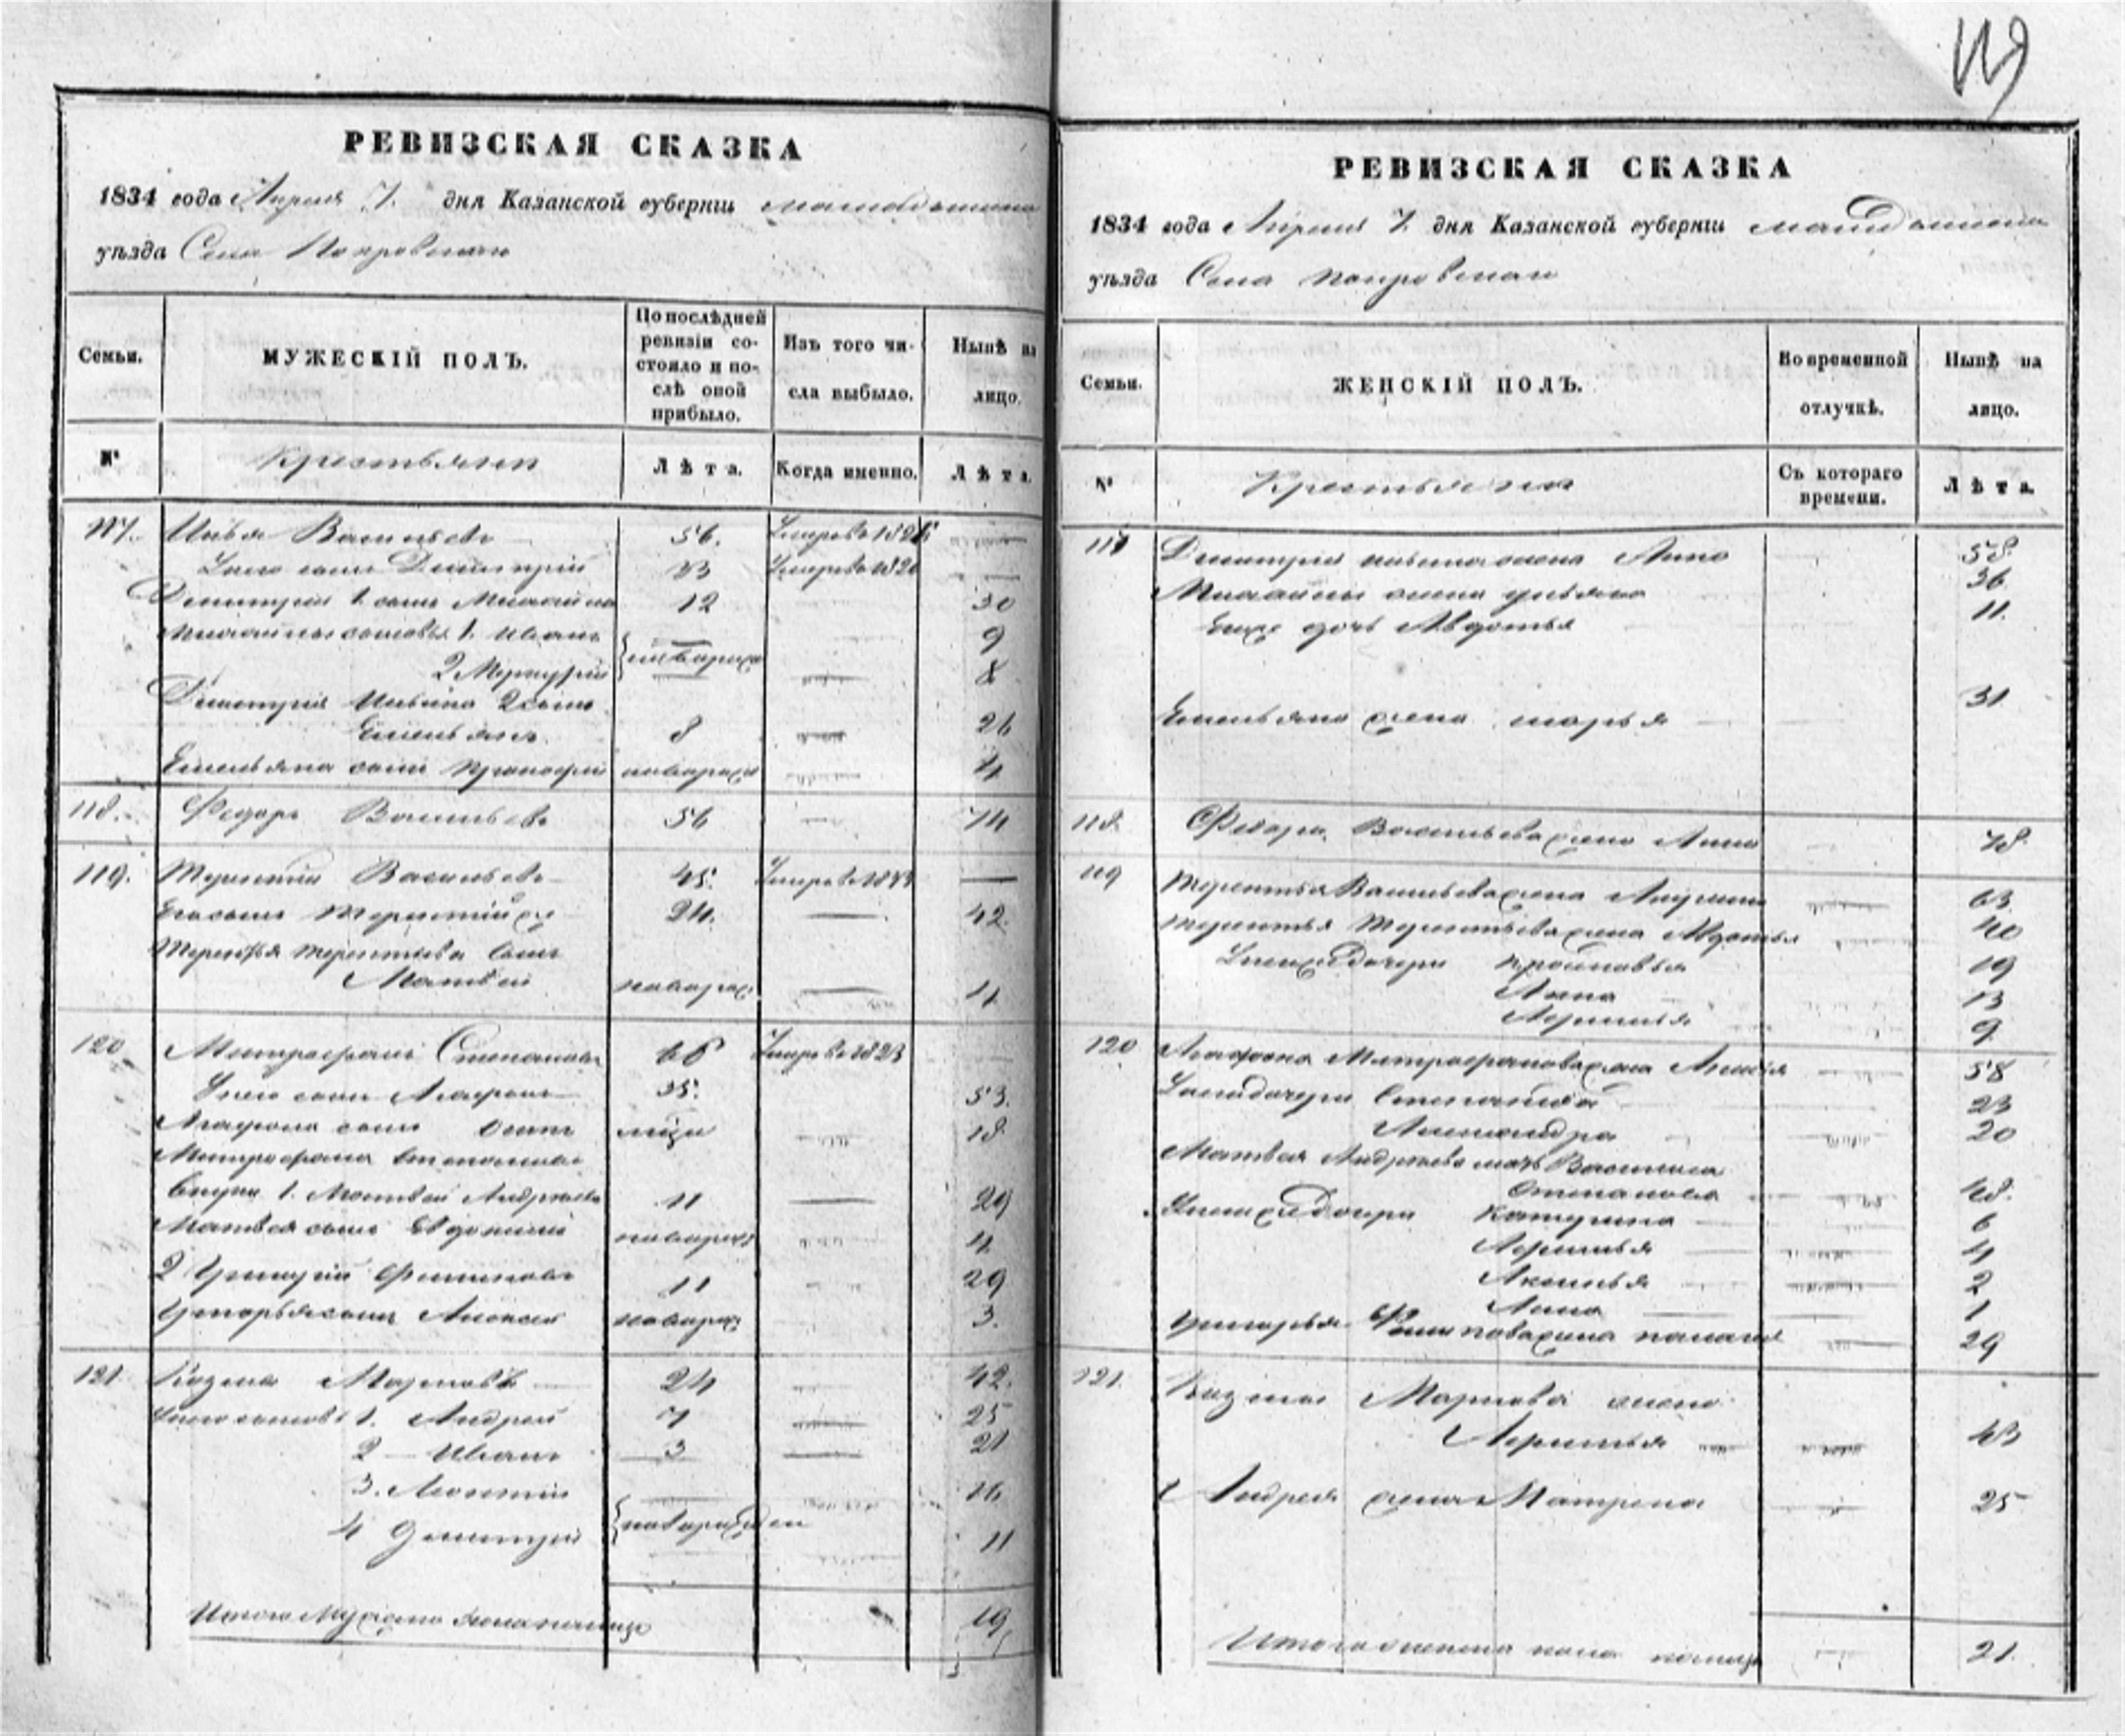 119
РЕВИЗСКАЯ СКАЗКА
1834 года Апреля 7. дня Казанской губерніи
уѣзда Села Покровскаго
Семьи.
МУЖЕСКІЙ ПОЛЪ.
По послѣдней ревизіи состояло и послѣ оной прибыло.
Изъ того числа выбыло.
Нынѣ на лицо.
№
Крестьяни
Лѣта.
Когда именно.
Лѣта.
117. Илья Васильевъ 56. Умеръ в 1826
Унего сынъ Дмитрій 33 Умеръ в 1820
Дмитрія 1 сынъ Михайла 12 30
Михайлы сыновья 1. Иванъ 9
2 Меркурій 8
Дмитрія Ильина 2 сынъ
Емельянъ 8 26
Емельяна сынъ Прокофій новорож 4
118. Федоръ Васильевъ 56 74
119. Терентій Васильевъ 45. Умеръ в 1833 —
Его сынъ Терентій же 24. — 42.
Терентья Терентьева сынъ
Матвей новорож — 4
120 Митрофанъ Степановъ 66 Умеръ в 1823
Унего сынъ Агафонъ 35. 53.
Агафона сынъ Осипъ 18
Митрофана Степанова
внуки 1. Матвей Андреевъ 11 — 29
Матвея сынъ Евдокимъ новорож 4
2 Григорій Филиповъ 11 29
Григорья сынъ Алексей новорож 3.
121 Козма Марковъ 24 42.
Унего сыновья 1. Андрей 7 25
2 — Иванъ 3 — 21
3. Леонтій 16
4 Дмитрій новорожден 11
Итого мужеска пола налицо 19
РЕВИЗСКАЯ СКАЗКА
1834 года Апреля 7. дня Казанской губерніи
уѣзда Села Покровскаго
Семьи.
ЖЕНСКІЙ ПОЛЪ.
Во временной отлучкѣ.
Нынѣ на лицо.
№
Крестьяне
Съ котораго времени.
Лѣта.
117 Дмитрія Ильина жена Анна 58
Михайлы жена Ульяна 36
Ихже дочь Авдотья 11.
Емельяна жена Марья 31
118. Федора Васильева жена Анна 78.
119 Терентья Васильева жена 63
Терентья Терентьева жена Авдотья 40
Унихже дочери 19
Анна 13
Афимья 9
120 Агафона Митрофанова жена 58
дочери Степанида 23
Александра 20
Матвея Андреева мать Василиса
Степанова 48.
Унихже дочери Катерина 6
Афимья 4
Аксинья 2
Анна 1
Григорья Филипова жена Палагея 29
121. Козмы Маркова жена
Афимья 43
Андрея жена Матрена 25
Итого женска пола налицо 21.